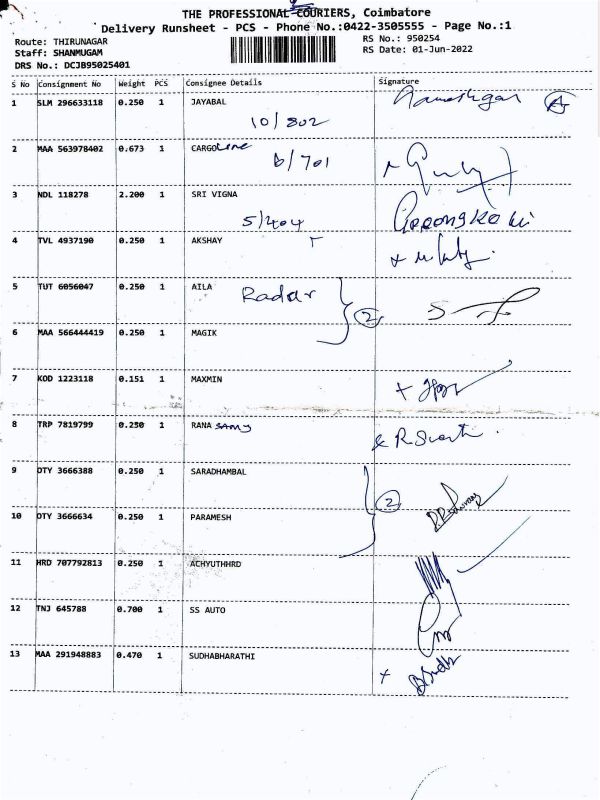 THE PROFESSIONAL COURIERS, Coimbatore
Delivery Runsheet - PCS - Phone No.:0422-3505555 - Page No.:1
Route: THIRUNAGAR
RS No.: 950254
Staff: SHANMUGAM
RS Date: 01-Jun-2022
DRS No.: DCJB95025401
S No Consignment No Weight PCS Consignee Details Signature
1 SLM 296633118 0.250 1 JAYABAL
10/802
2 MAA 563978402 0.673 1 CARGO Line
B/701
3 NDL 118278 2.200 1 SRI VIGNA
5/404
4 TVL 4937190 0.250 1 AKSHAY
5 TUT 6056047 0.250 1 AILA Radar
2
6 MAA 566444419 0.250 1 MAGIK
7 KOD 1223118 0.151 1 MAXMIN
8 TRP 7819799 0.250 1 RANA SAMY
9 OTY 3666388 0.250 1 SARADHAMBAL
2
10 OTY 3666634 0.250 1 PARAMESH
11 HRD 707792813 0.250 1 ACHYUTHHRD
12 TNJ 645788 0.700 1 SS AUTO
13 MAA 291948883 0.470 1 SUDHABHARATHI